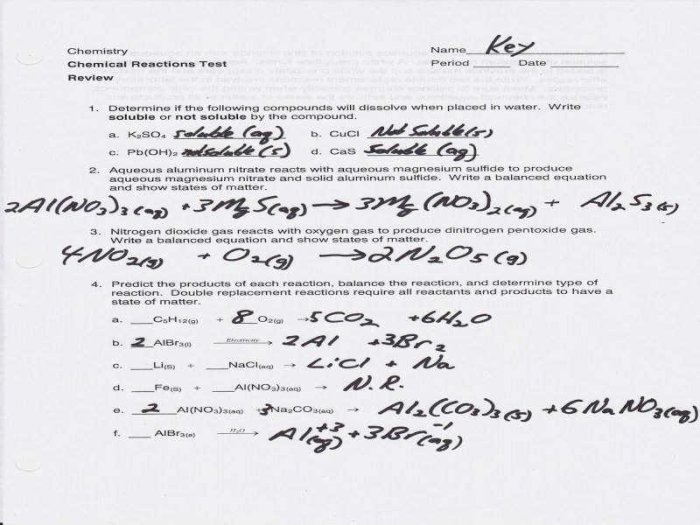 Chemistry Name Key
Chemical Reactions Test Period ______ Date ______
Review
1. Determine if the following compounds will dissolve when placed in water. Write
soluble or not soluble by the compound.
a. K₂SO₄ soluble (aq) b. CuCl Not Soluble (s)
c. Pb(OH)₂ not soluble (s) d. CaS Soluble (aq)
2. Aqueous aluminum nitrate reacts with aqueous magnesium sulfide to produce
aqueous magnesium nitrate and solid aluminum sulfide. Write a balanced equation
and show states of matter.
2Al(NO₃)₃(aq) + 3MgS(aq) → 3Mg(NO₃)₂(aq) + Al₂S₃(s)
3. Nitrogen dioxide gas reacts with oxygen gas to produce dinitrogen pentoxide gas.
Write a balanced equation and show states of matter.
4NO₂(g) + O₂(g) → 2N₂O₅(g)
4. Predict the products of each reaction, balance the reaction, and determine type of
reaction. Double replacement reactions require all reactants and products to have a
state of matter.
a. ___C₅H₁₂(g) + 8 O₂(g) → 5CO₂ + 6H₂O
b. 2 AlBr₃(l) Electricity → 2Al + 3Br₂
c. ___Li(s) + ___NaCl(aq) → LiCl + Na
d. ___Fe(s) + ___Al(NO₃)₃(aq) → N.R.
e. 2 Al(NO₃)₃(aq) + 3Na₂CO₃(aq) → Al₂(CO₃)₃(s) + 6NaNO₃(aq)
f. ___ AlBr₃(s) H₂O → Al⁺³(aq) + 3Br⁻¹(aq)